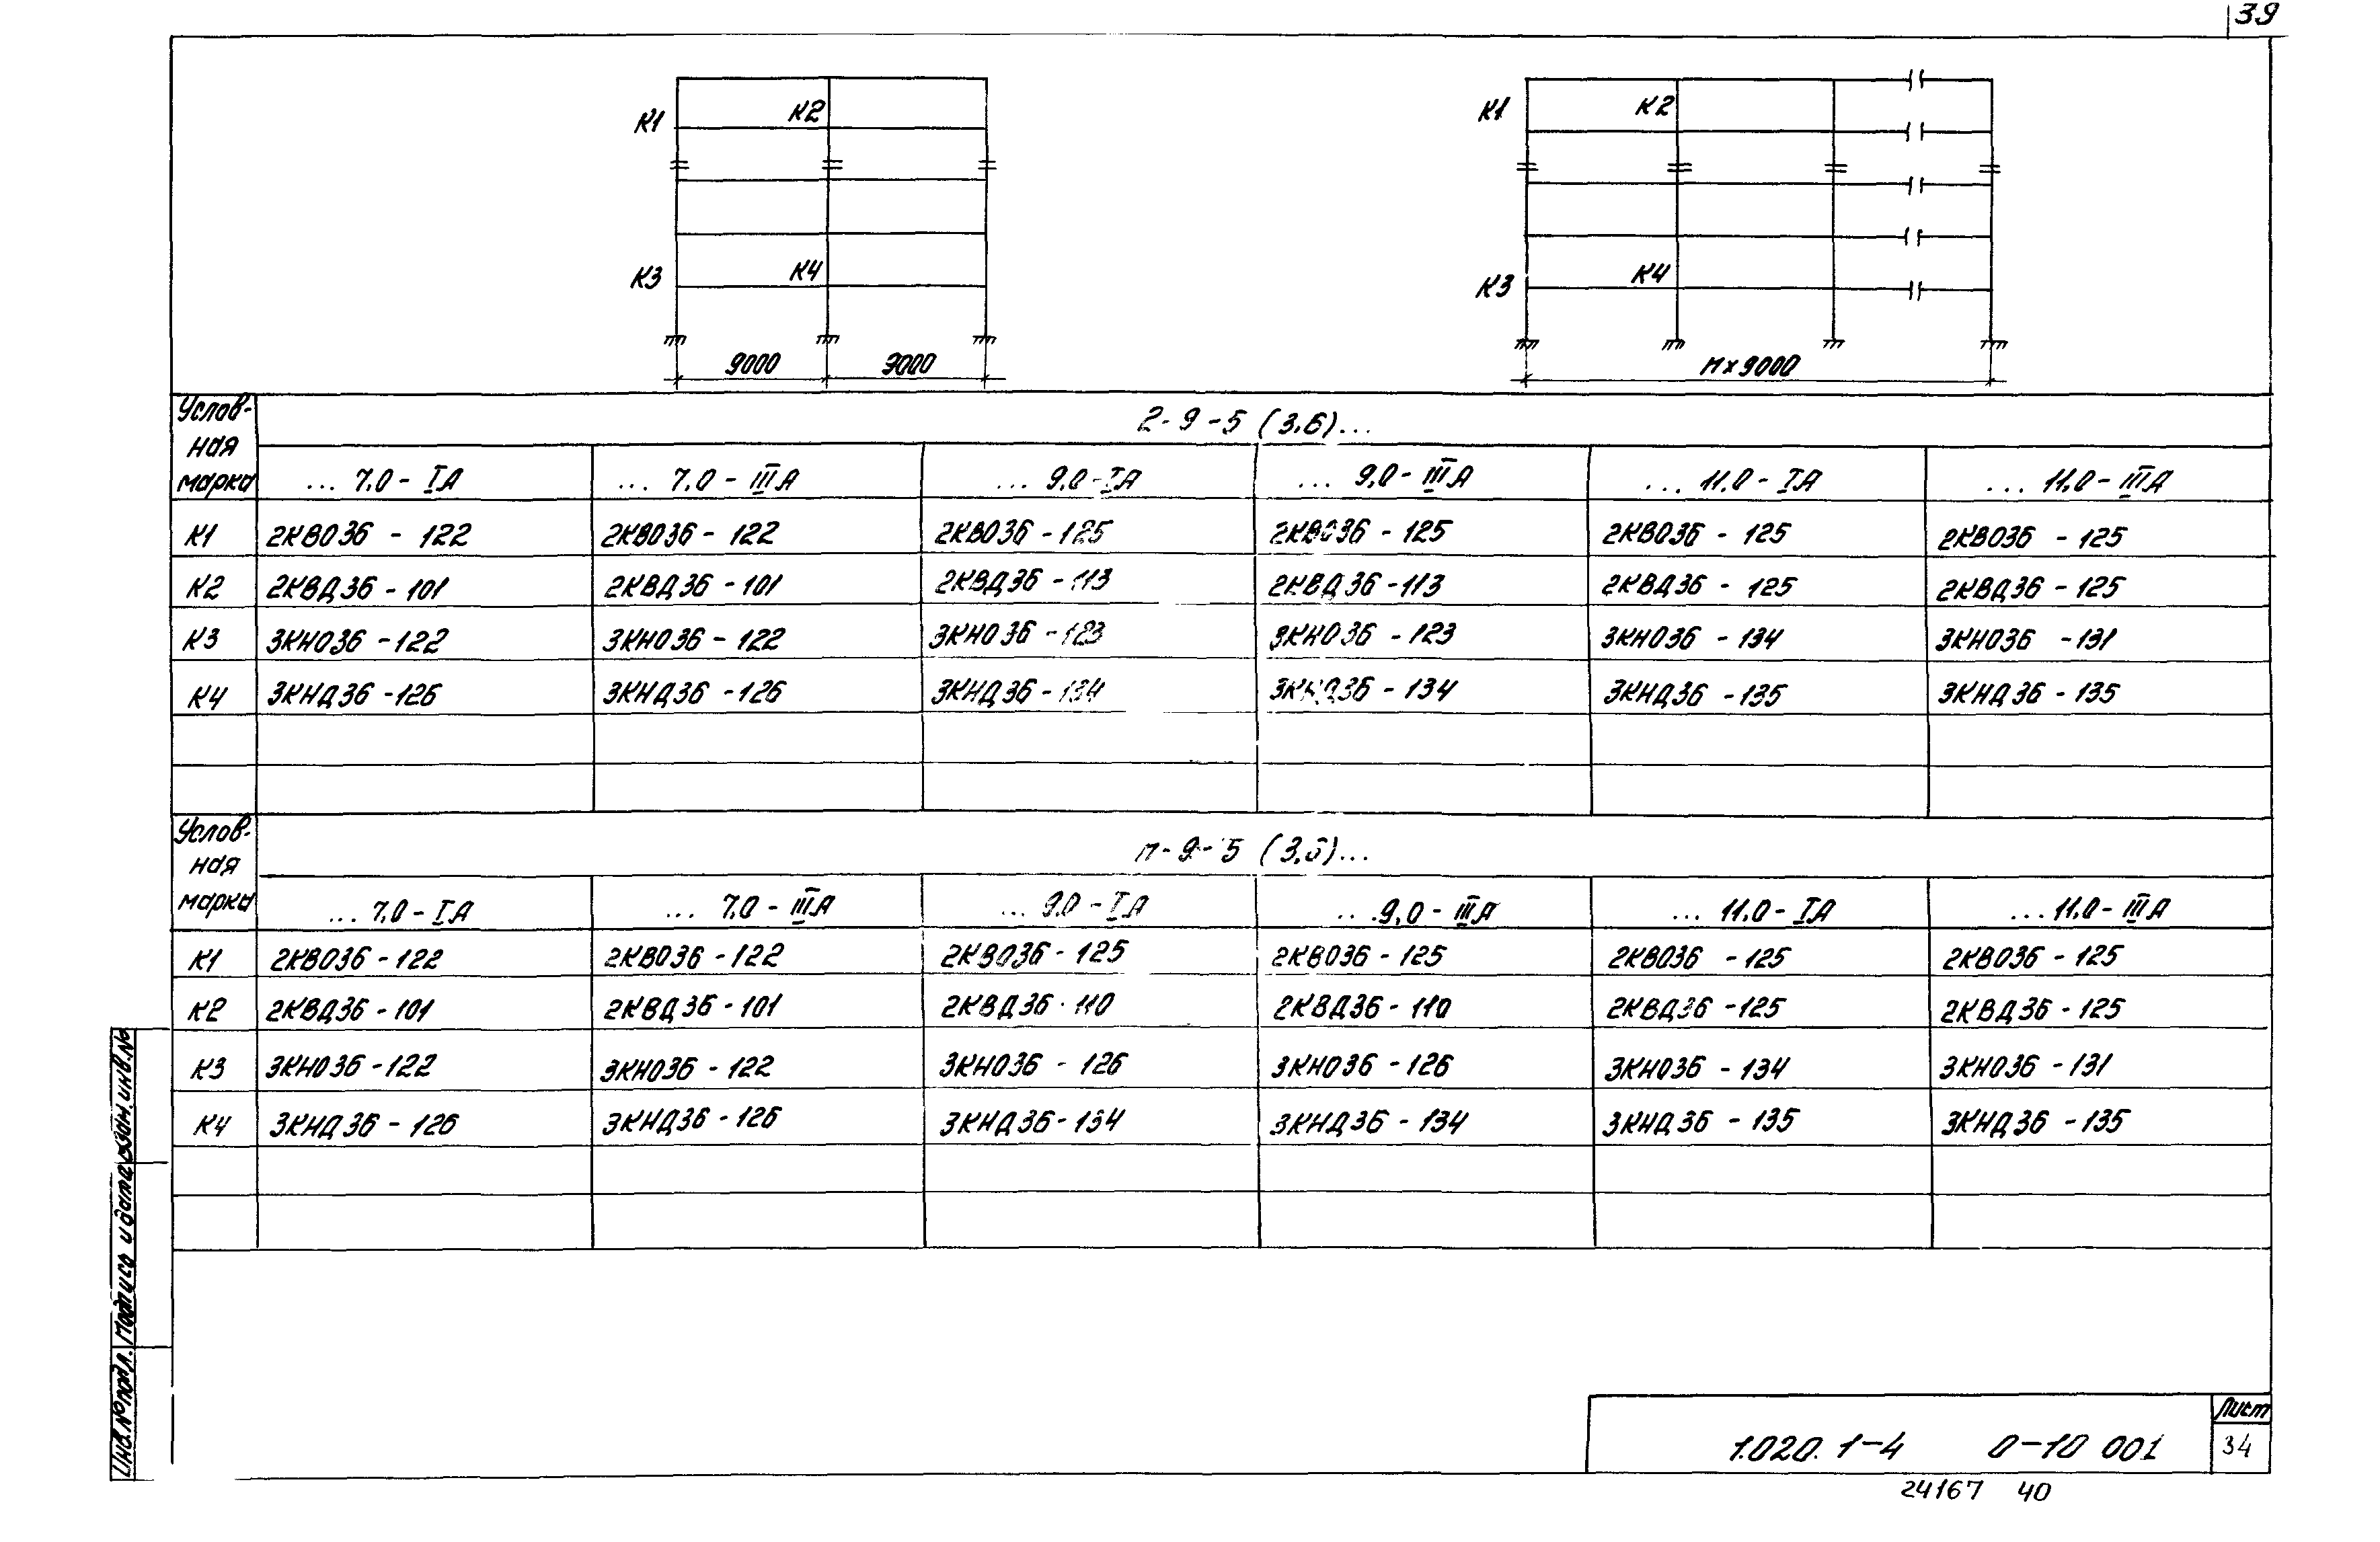 39
К1 К2 К1 К2
К3 К4 К3 К4
9000 9000 п×9000
Услов-
ная
марка
2-9-5 (3.6)...
...7.0-IА ...7.0-IIIА ...9.0-IА ...9.0-IIIА ...11.0-IА ...11.0-IIIА
К1 2КВО36-122 2КВО36-122 2КВО36-125 2КВО36-125 2КВО36-125 2КВО36-125
К2 2КВД36-101 2КВД36-101 2КВД36-113 2КВД36-113 2КВД36-125 2КВД36-125
К3 3КНО36-122 3КНО36-122 3КНО36-123 3КНО36-123 3КНО36-134 3КНО36-131
К4 3КНД36-126 3КНД36-126 3КНД36-134 3КНД36-134 3КНД36-135 3КНД36-135
Услов-
ная
марка
п-9-5 (3.6)...
...7.0-IА ...7.0-IIIА ...9.0-IА ...9.0-IIIА ...11.0-IА ...11.0-IIIА
К1 2КВО36-122 2КВО36-122 2КВО36-125 2КВО36-125 2КВО36-125 2КВО36-125
К2 2КВД36-101 2КВД36-101 2КВД36-110 2КВД36-110 2КВД36-125 2КВД36-125
К3 3КНО36-122 3КНО36-122 3КНО36-126 3КНО36-126 3КНО36-134 3КНО36-131
К4 3КНД36-126 3КНД36-126 3КНД36-134 3КНД36-134 3КНД36-135 3КНД36-135
Инв.№подл. Подпись и дата Взам.инв.№
1.020.1-4 0-10 001
Лист
34
24167 40